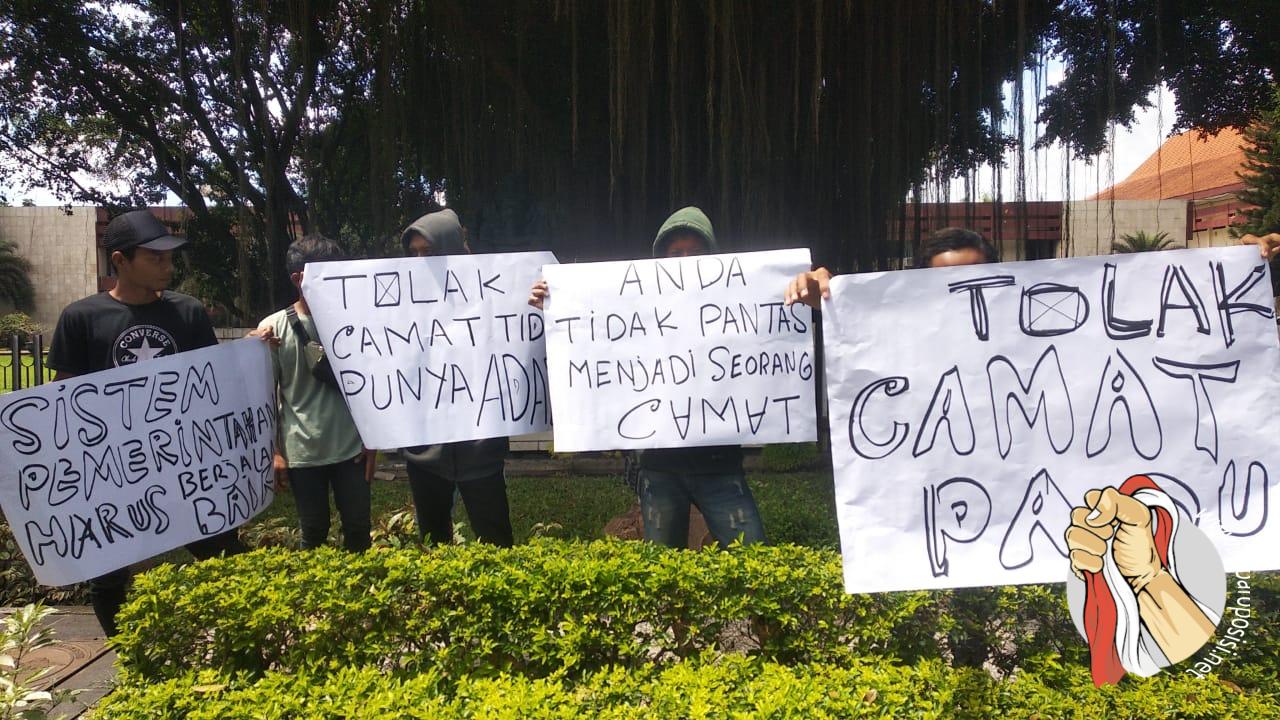 CONVERSE
SISTEM
PEMERINTAHAN
HARUS BERJALAN
BAIK
TOLAK
CAMAT TID
PUNYA ADA
ANDA
TIDAK PANTAS
MENJADI SEORANG
CAMAT
TOLAK
CAMAT